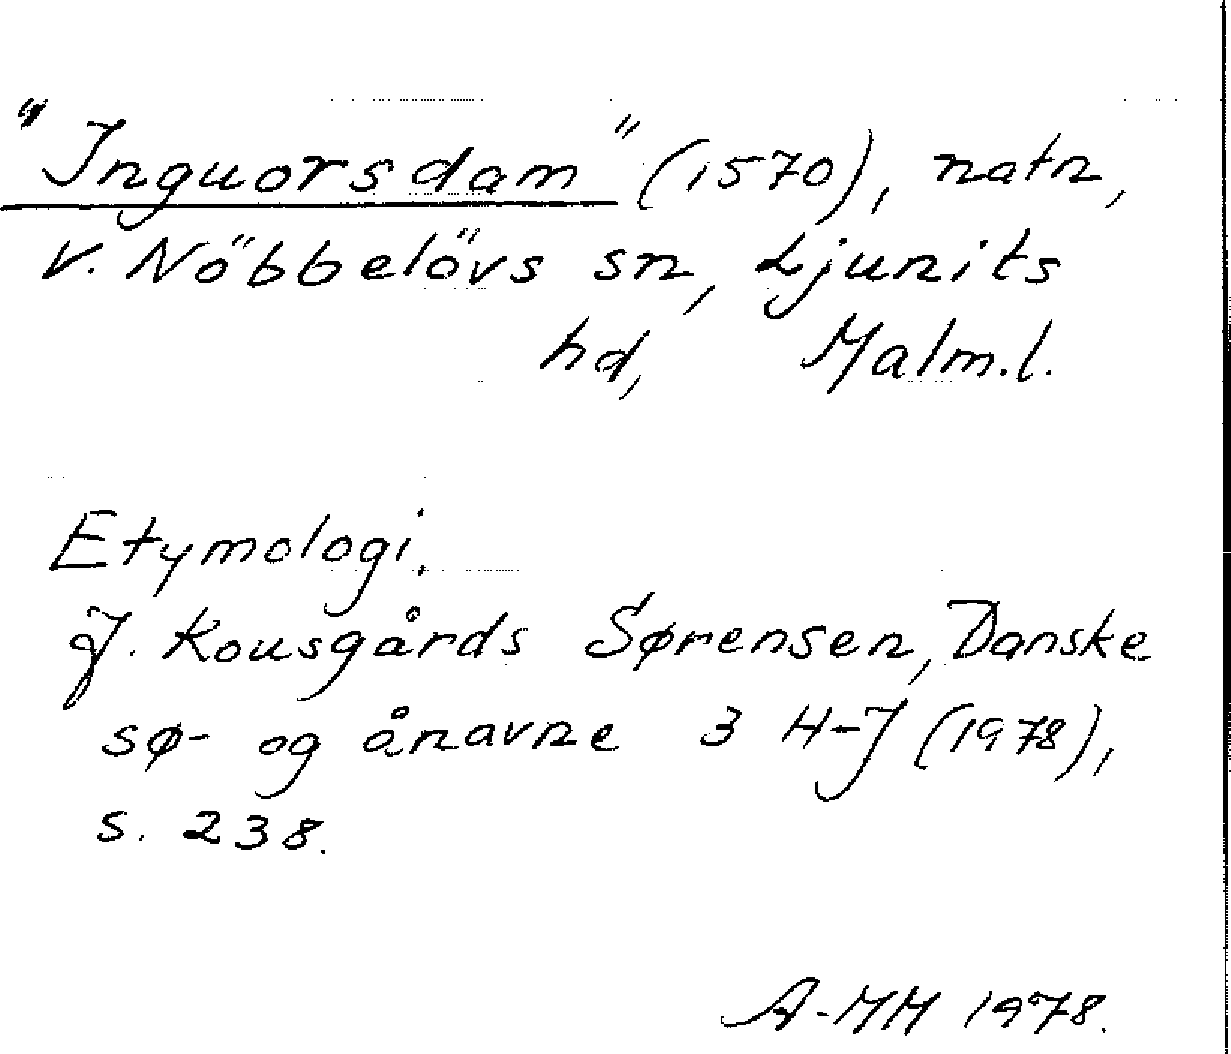 "Inguorsdam" (1570), natn,
V. Nöbbelövs sn, Ljunits
hd, Malm.l.
Etymologi.
J. Kousgårds Sørensen, Danske
sø- og ånavne 3 H-J (1978),
s. 238.
A-MH 1978.